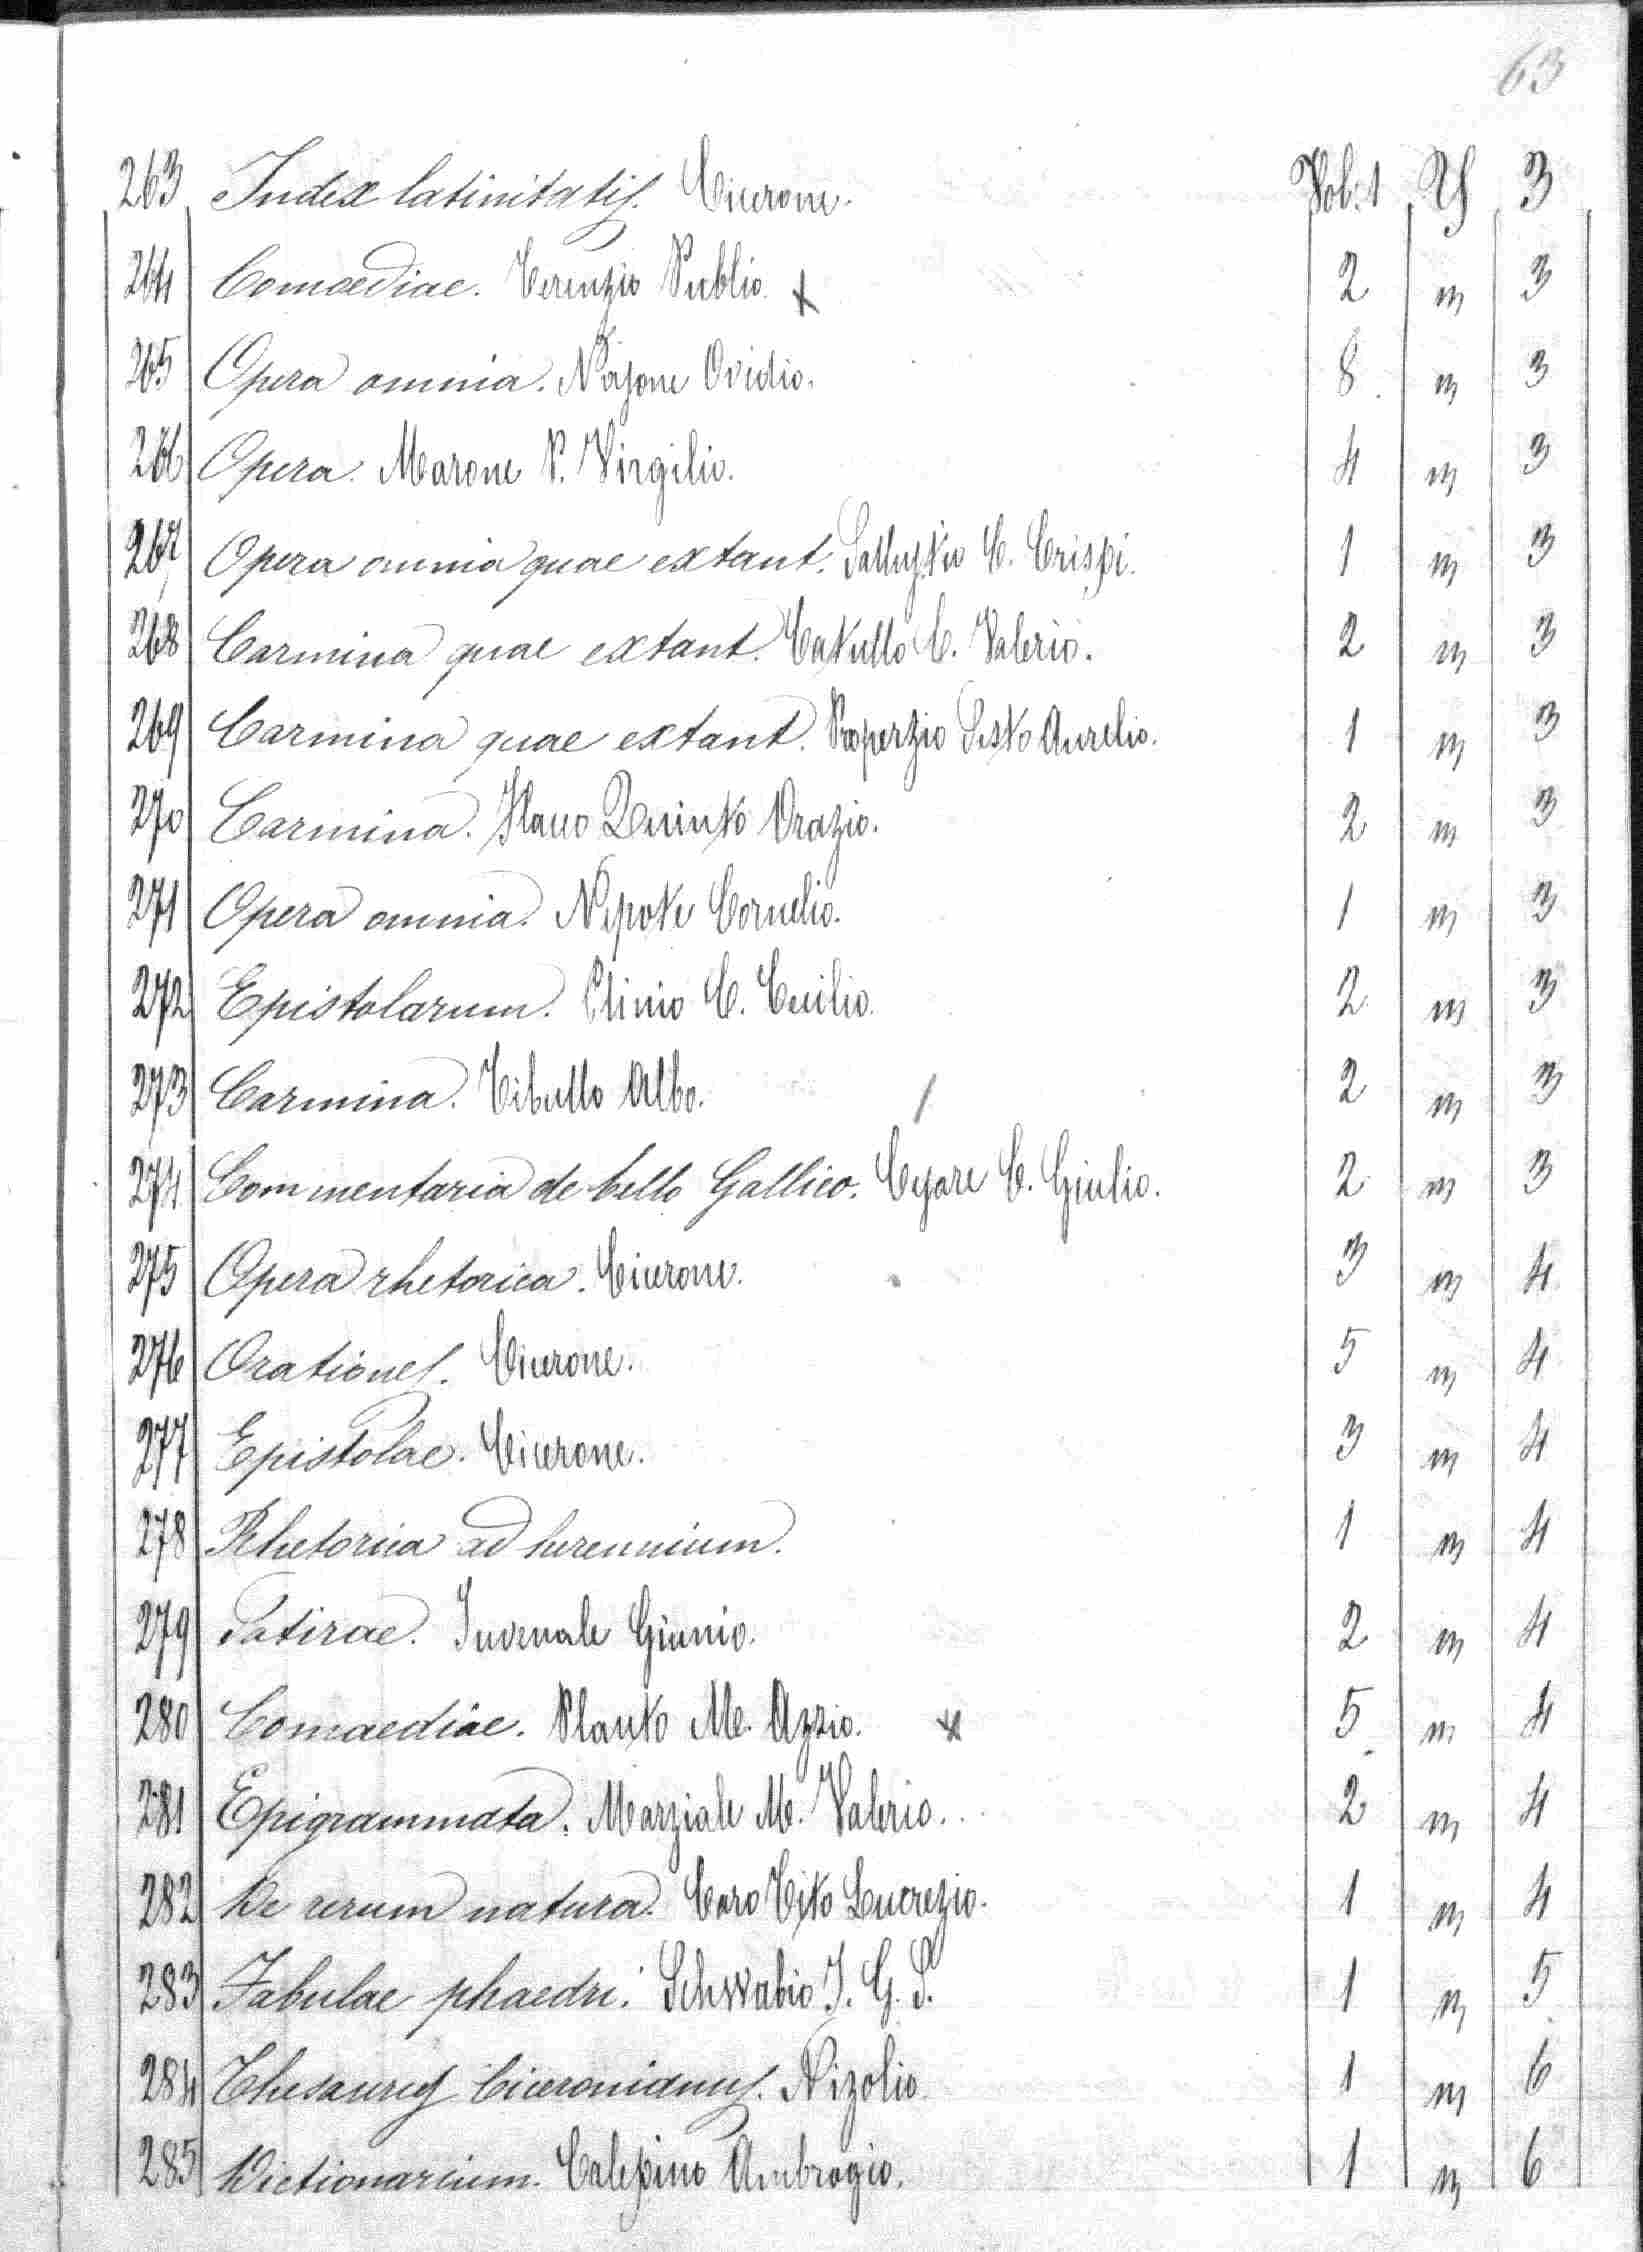 63
263 Index latinitatis. Cicerone. Vol. 1 3
264 Comoediae. Terenzio Publio. x 2 m 3
265 Opera omnia. Nasone Ovidio. 8 m 3
266 Opera. Marone P. Virgilio. 4 m 3
267 Opera omnia quae extant. Sallustio C. Crispi. 1 m 3
268 Carmina quae extant. Catullo C. Valerio. 2 m 3
269 Carmina quae extant. Properzio Sesto Aurelio. 1 m 3
270 Carmina. Flacco Quinto Orazio. 2 m 3
271 Opera omnia. Nepote Cornelio. 1 m 3
272 Epistolarum. Plinio C. Cecilio. 2 m 3
273 Carmina. Tibullo Albo. 2 m 3
274 Commentaria de bello Gallico. Cesare C. Giulio. 2 m 3
275 Opera rhetorica. Cicerone. 3 m 4
276 Orationes. Cicerone. 5 m 4
277 Epistolae. Cicerone. 3 m 4
278 Rhetorica ad herennium. 1 m 4
279 Satirae. Iuvenale Giunio. 2 m 4
280 Comaediae. Plauto M. Azzio. x 5 m 4
281 Epigrammata. Marziale M. Valerio. 2 m 4
282 De rerum natura. Caro Tito Lucrezio. 1 m 4
283 Fabulae phaedri. Schwabio I. G. S. 1 m 5
284 Thesaurus Ciceronianus. Nizolio. 1 m 6
285 Dictionarium. Calepino Ambrogio. 1 m 6